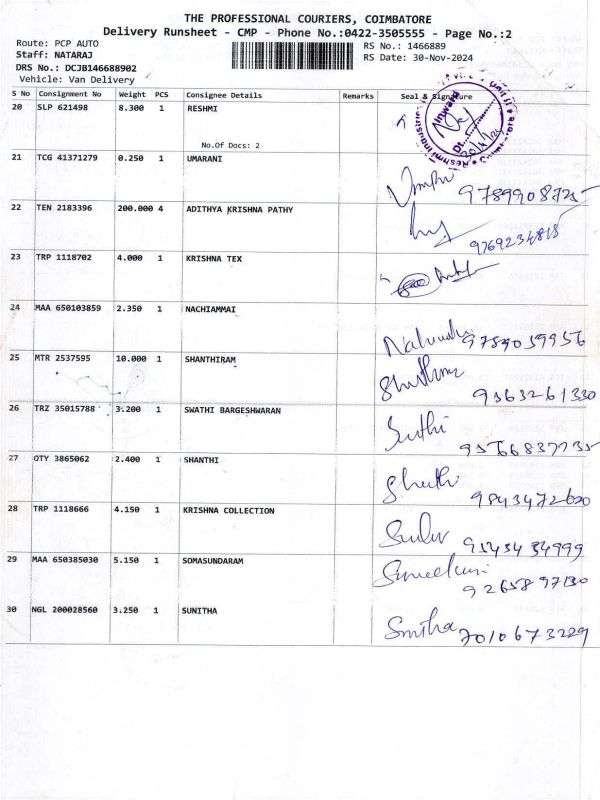 THE PROFESSIONAL COURIERS, COIMBATORE
Delivery Runsheet - CMP - Phone No.:0422-3505555 - Page No.:2
Route: PCP AUTO
RS No.: 1466889
Staff: NATARAJ
RS Date: 30-Nov-2024
DRS No.: DCJB146688902
Vehicle: Van Delivery
S No Consignment No Weight PCS Consignee Details Remarks Seal & Signature
20 SLP 621498 8.300 1 RESHMI
No.Of Docs: 2
Reshmi Industries
Inward
Dt.
21 TCG 41371279 0.250 1 UMARANI
9789908725
22 TEN 2183396 200.000 4 ADITHYA KRISHNA PATHY
9769234815
23 TRP 1118702 4.000 1 KRISHNA TEX
24 MAA 650103859 2.350 1 NACHIAMMAI
9789039956
25 MTR 2537595 10.000 1 SHANTHIRAM
9363261330
26 TRZ 35015788 3.200 1 SWATHI BARGESHWARAN
9566837735
27 OTY 3865062 2.400 1 SHANTHI
9843472620
28 TRP 1118666 4.150 1 KRISHNA COLLECTION
9543434999
29 MAA 650385030 5.150 1 SOMASUNDARAM
9265897130
30 NGL 200028560 3.250 1 SUNITHA
Smitha 7010673229